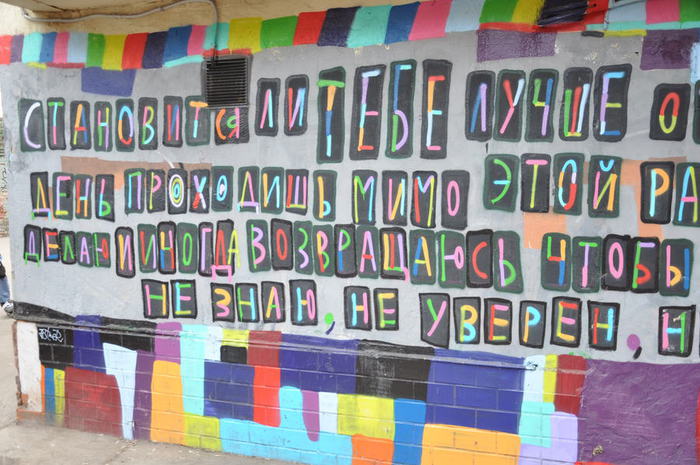 СТАНОВИТСЯ ЛИ ТЕБЕ ЛУЧШЕ О
ДЕНЬ ПРОХОДИШЬ МИМО ЭТОЙ РА
ДЕЛАЮ И ИНОГДА ВОЗВРАЩАЮСЬ ЧТОБЫ
НЕ ЗНАЮ, НЕ УВЕРЕН, Н